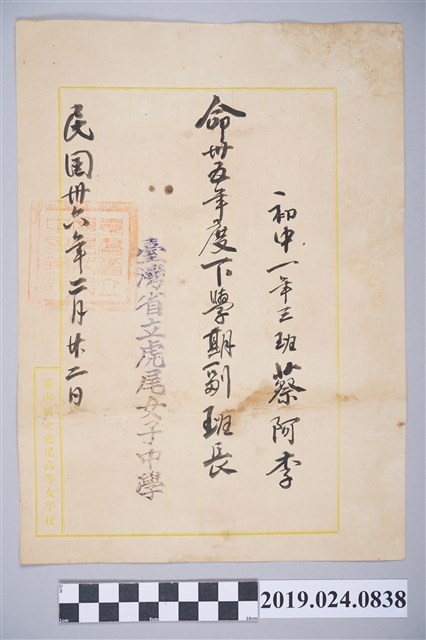 初中一年三班蔡阿李
命卅五年度下學期副班長
臺灣省立虎尾女子中學
民国卅六年二月廿二日
2019.024.0838